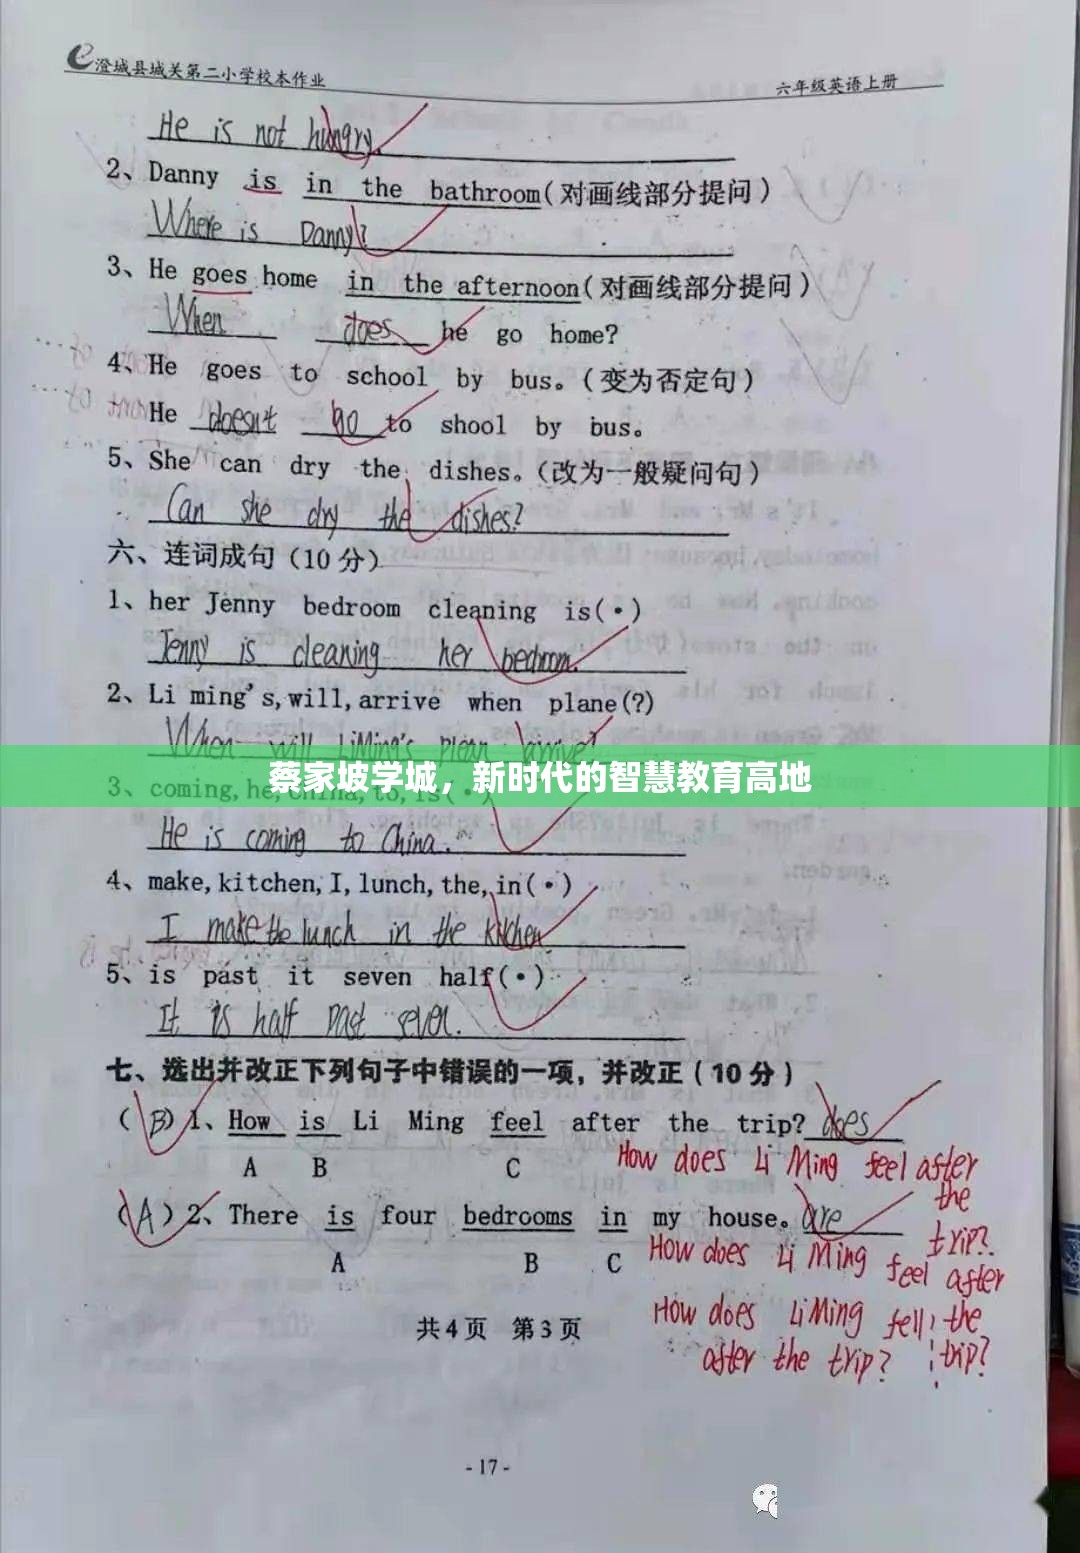 澄城县城关第二小学校本作业 六年级英语上册
He is not hungry.
2、Danny is in the bathroom(对画线部分提问)
Where is Danny?
3、He goes home in the afternoon(对画线部分提问)
When does he go home?
4、He goes to school by bus。(变为否定句)
He doesn't go to shool by bus。
5、She can dry the dishes。(改为一般疑问句)
Can she dry the dishes?
六、连词成句(10分)
1、her Jenny bedroom cleaning is(·)
Jenny is cleaning her bedroom.
2、Li ming's,will,arrive when plane(?)
When will LiMing's plean arrive?
蔡家坡学城，新时代的智慧教育高地
3、coming,he,China,to,is(·)
He is coming to China.
4、make,kitchen,I,lunch,the,in(·)
I make the lunch in the kitchen
5、is past it seven half(·)
It is half past seven.
七、选出并改正下列句子中错误的一项，并改正(10分)
(B)1、How is Li Ming feel after the trip? does
A B C
How does Li Ming feel after the trip?
(A)2、There is four bedrooms in my house。are
A B C
How does Li Ming feel after the trip?
How does LiMing fell after the trip?
共4页 第3页
-17-